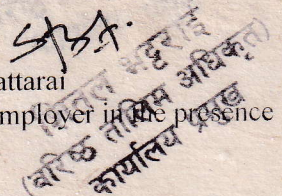 attarai
mployer in the presence
शितल भट्टराई
(वरिष्ठ तालिम अधिकृत)
कार्यालय प्रमुख